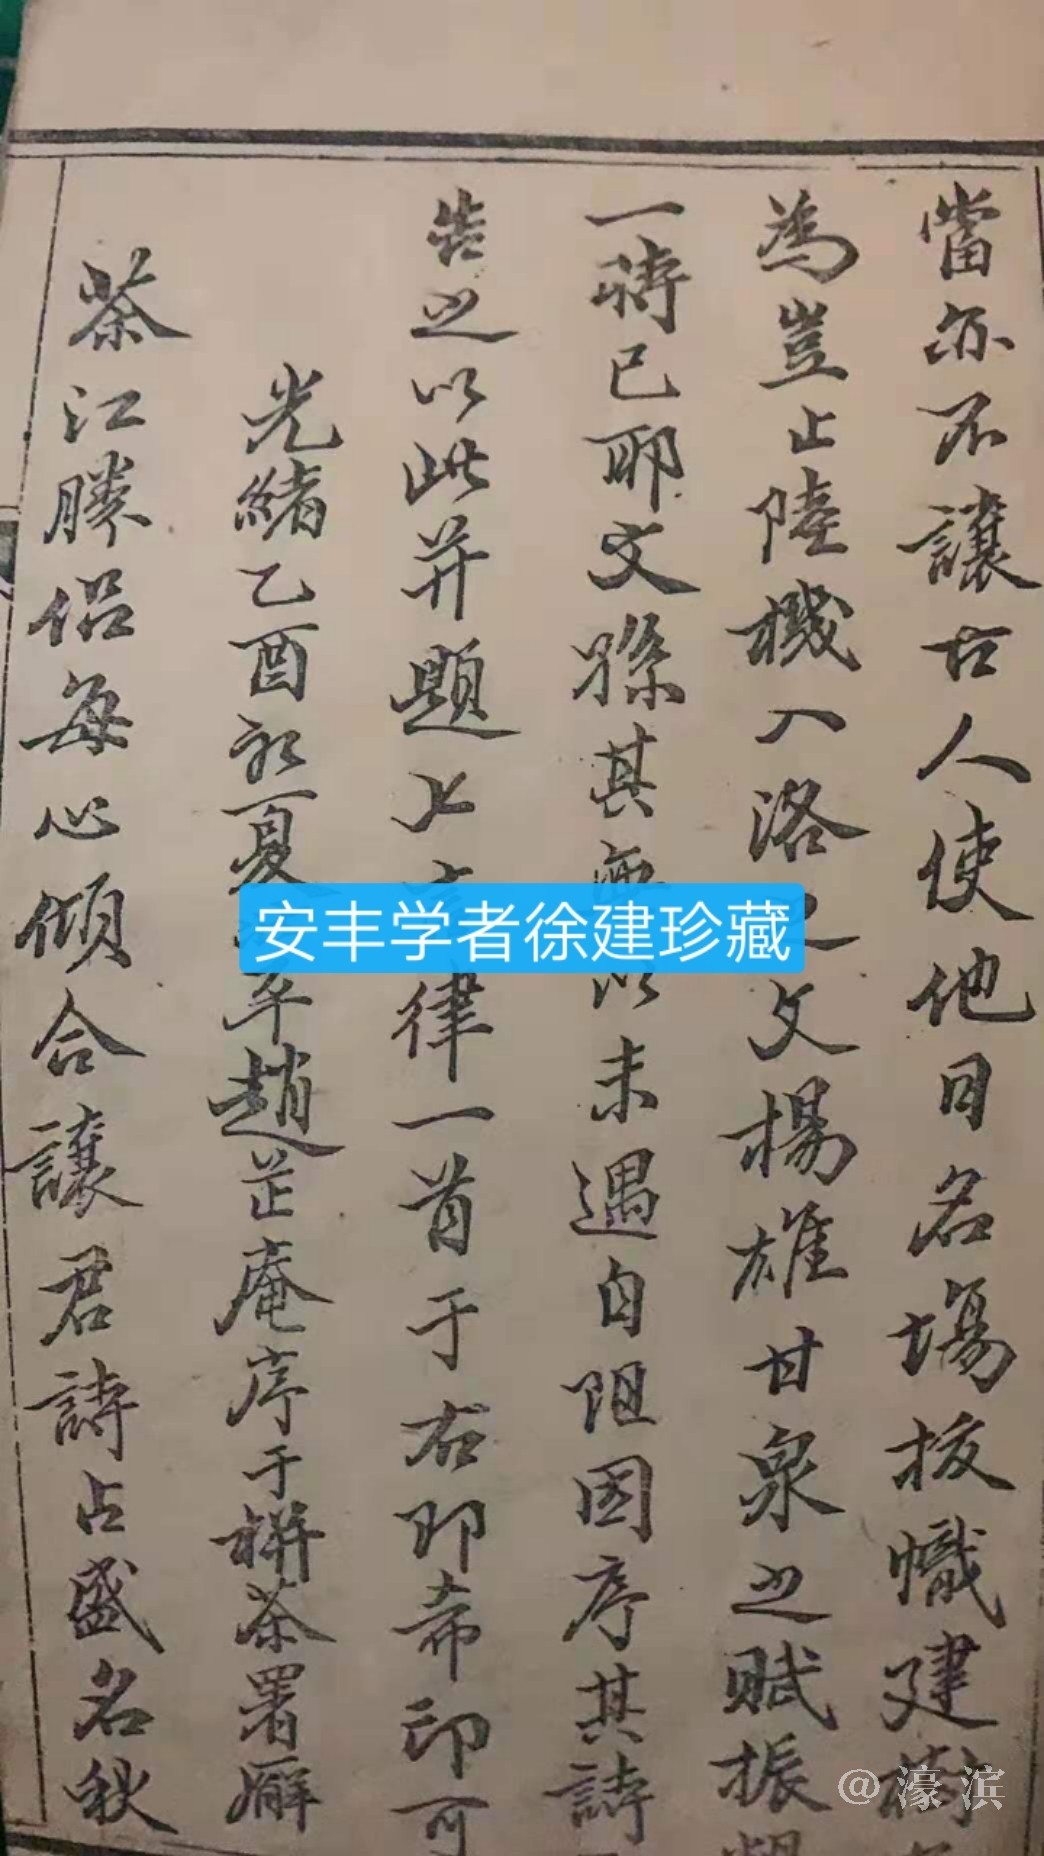 當亦不讓古人使他日名塲拔幟建樹
為豈止陸機入洛之文揚雄甘泉之賦振
一時已耶文孫其無以未遇自阻因序其詩
告之以此并題七言律一首于右即希印可
光緒乙酉初夏 趙芷庵序于栟茶署廨
茶江勝侶每心傾合讓君詩占盛名秋
安丰学者徐建珍藏
@濠滨